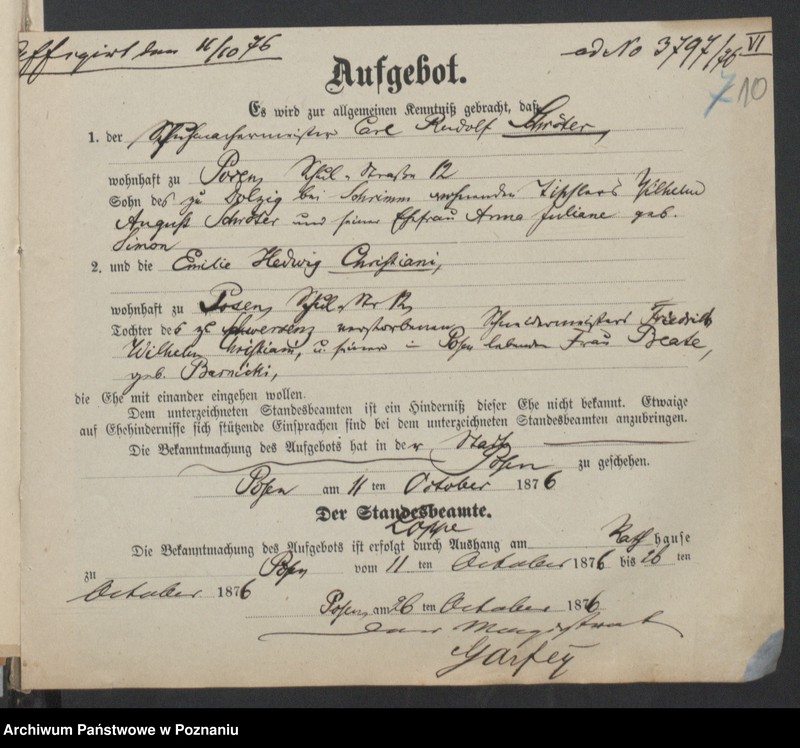 affigirt den 11/10 76
ad No 3797/76 VI
7 10
Aufgebot.
Es wird zur allgemeinen Kenntniß gebracht, daß
1. der Schuhmachermeister Carl Rudolf Schröter,
wohnhaft zu Posen, Schul-Straße 12
Sohn des zu bei Schrimm wohnenden Tischlers Wilhelm
August Schröter und seiner Ehefrau Anna Juliane geb.
Simon
2. und die Emilie Hedwig Christiani,
wohnhaft zu Posen, Schul-Str 12,
Tochter des zu Schwersenz verstorbenen Schneidermeisters Friedrich
Wilhelm Christiani, u. seiner in Posen lebenden Frau Beate,
geb. Barnicki,
die Ehe mit einander eingehen wollen.
Dem unterzeichneten Standesbeamten ist ein Hinderniß dieser Ehe nicht bekannt. Etwaige
auf Ehehindernisse sich stützende Einsprachen sind bei dem unterzeichneten Standesbeamten anzubringen.
Die Bekanntmachung des Aufgebots hat in der Stadt
Posen zu geschehen.
Posen am 11 ten October 1876
Der Standesbeamte.
Die Bekanntmachung des Aufgebots ist erfolgt durch Aushang am Rathhause
zu Posen vom 11 ten October 1876 bis 26 ten
October 1876
Posen, am 26 ten October 1876
Der Magistrat
Archiwum Państwowe w Poznaniu